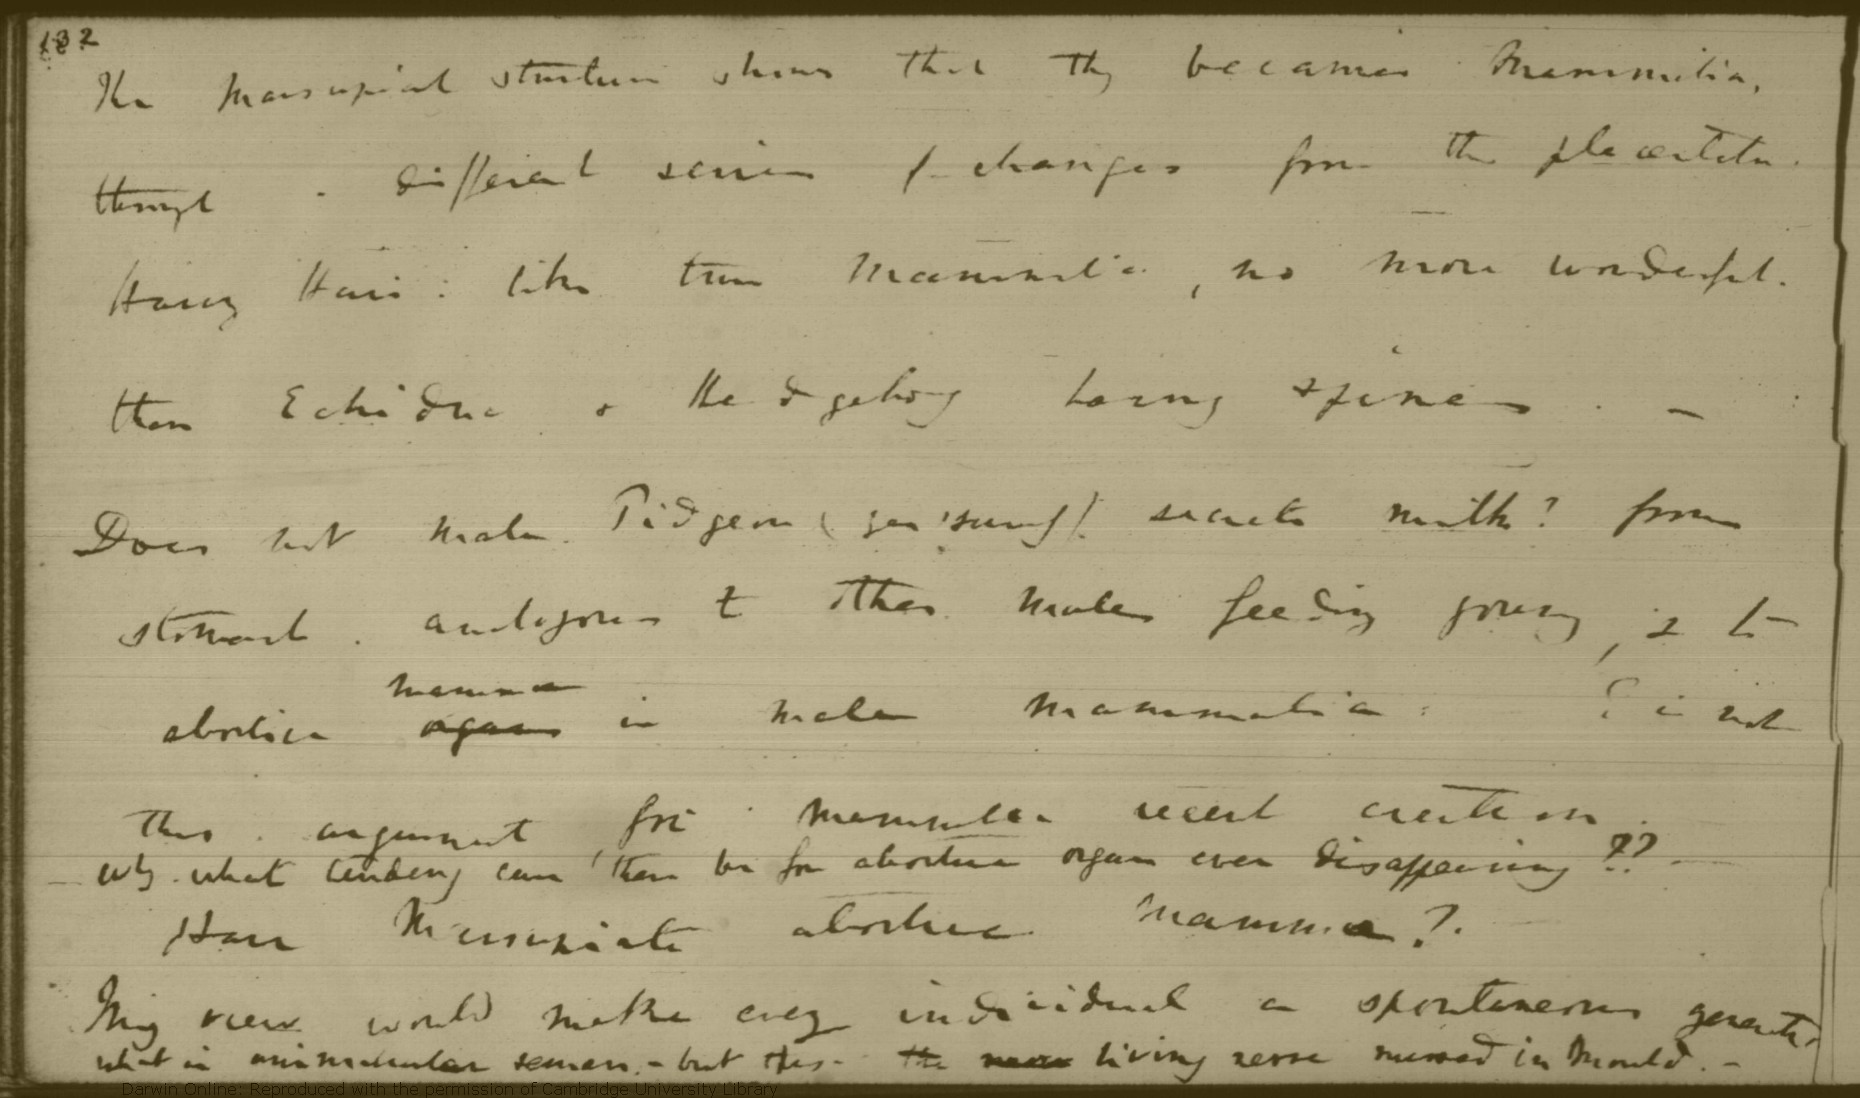 132
The Marsupial structure shows that they became Mammalia,
through a different series of changes from the placentata.
Having Hair like true Mammalia, no more wonderful
than Echidna & Hedgehog having spines. —
Does not male Pidgeon ( ) secrete milk? from
stomach. analogous to other males feeding young, & to
mammae
abortive organs in male Mammalia: ? is not
this argument, for Mammalia recent creation.
— why. what tendency can there be for abortive organ ever disappearing ??. —
Have Marsupiata abortive mammae?.
My view would make every individual a spontaneous generation.
what is animalcular semen. but this. — the living nerve in Mould. —
Darwin Online: Reproduced with the permission of Cambridge University Library